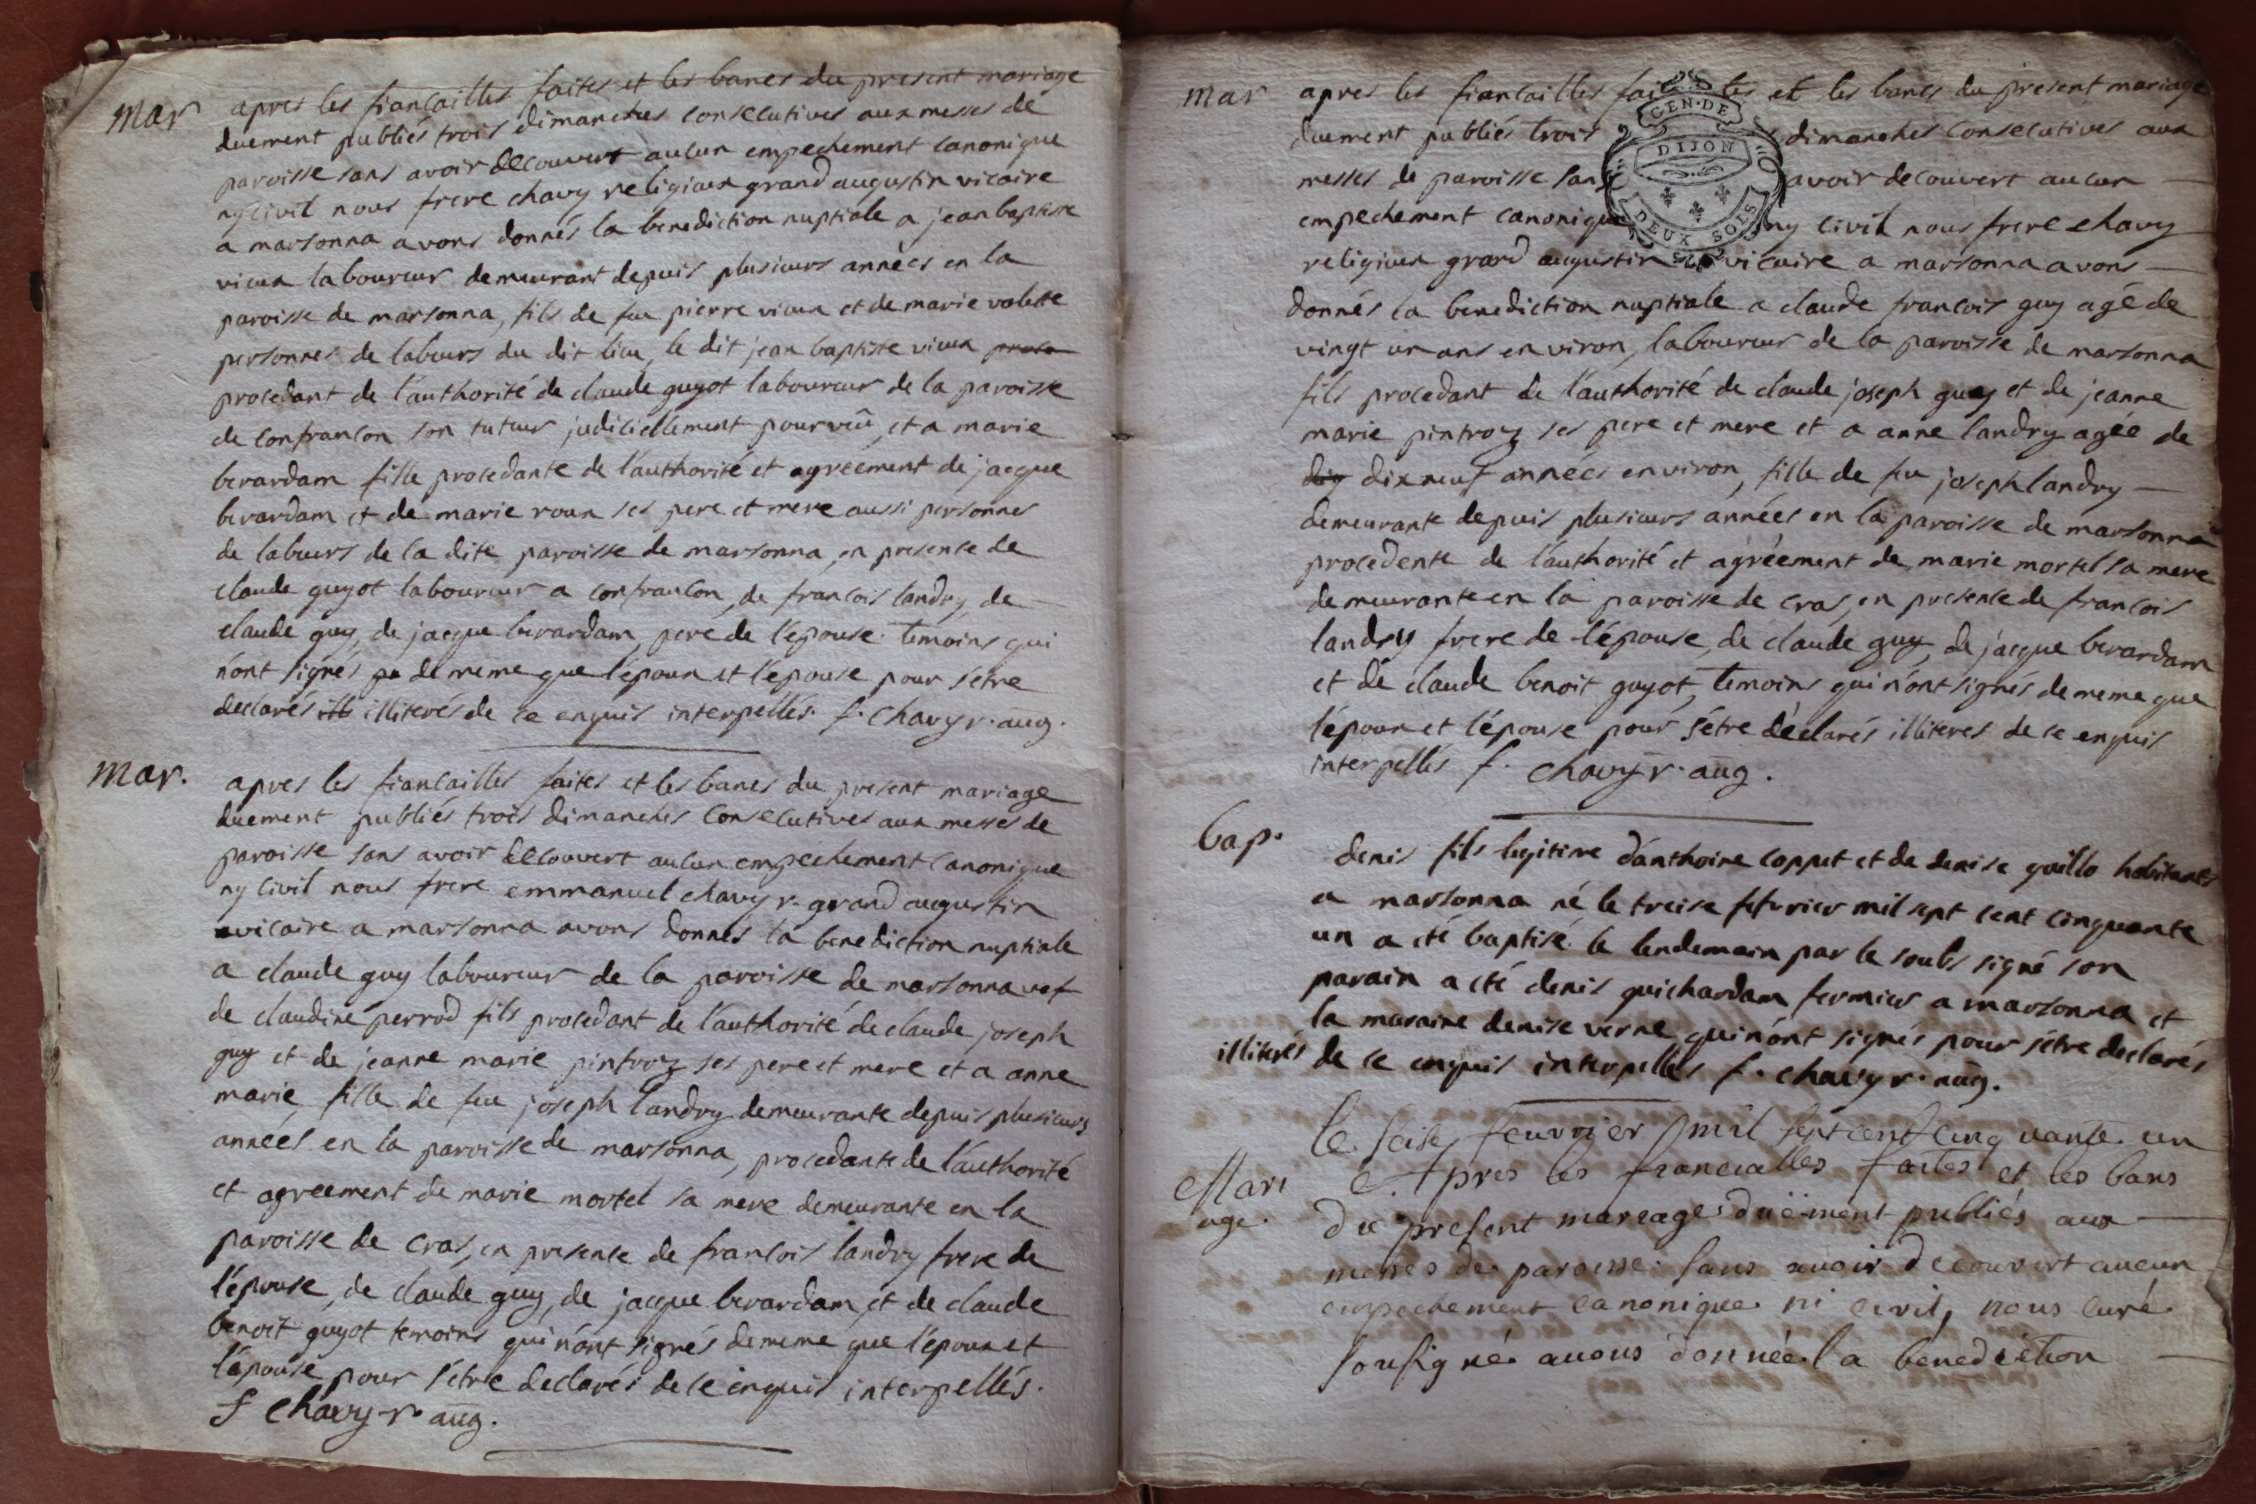 mar
apres les fiançailles faites et les bancs du present mariage
duement publiés trois dimanches consecutives aux messes de
paroisse sans avoir decouvert aucun empechement canonique
ny civil nous frere chavy religieux grand augustin vicaire
a marsonna avons donnés la benediction nuptiale a jean baptiste
vieux laboureur demeurant depuis plusieurs années en la
paroisse de marsonna, fils de feu pierre vieux et de marie volette
personnes de labeurs du dit lieu, le dit jean baptiste vieux
procedant de l'authorité de claude guyot laboureur de la paroisse
de confrancon son tuteur judiciellement pourvëu, et a marie
berardam fille procedante de l'authorité et agreement de jacque
berardam et de marie roux ses pere et mere aussi personnes
de labeurs de la dite paroisse de marsonna, en presence de
claude guyot laboureur a confrancon, de francois landry, de
claude guy, de jacque berardam, pere de l'épouse. temoins qui
n'ont signés de meme que l'époux et l'épouse pour s'etre
declarés illiterés de ce enquis interpellés. f. chavy r. aug.
mar.
apres les fiançailles faites et les bancs du present mariage
duement publiés trois dimanches consecutives aux messes de
paroisse sans avoir decouvert aucun empechement canonique
ny civil nous frere emmanuel chavy r. grand augustin
vicaire a marsonna avons donnés la benediction nuptiale
a claude guy laboureur de la paroisse de marsonna vef
de claudine perrod fils procedant de l'authorité de claude joseph
guy et de jeanne marie pintroz ses pere et mere et a anne
marie, fille de feu joseph landry demeurante depuis plusieurs
années en la paroisse de marsonna, procedante de l'authorité
et agreement de marie mortel sa mere demeurante en la
paroisse de cras, en presence de francois landry frere de
l'épouse, de claude guy, de jacque berardam, et de claude
benoit guyot temoins qui n'ont signés de meme que l'époux et
l'épouse pour s'étre declarés de ce enquis interpellés.
f chavy r. aug.
mar
apres les fiancailles faites et les bancs du present mariage
duement publiés trois dimanches consecutives aux
messes de paroisse sans avoir decouvert aucun
empechement canonique ny civil nous frere chavy
religieux grand augustin vicaire a marsonna avons
donnés la benediction nuptiale a claude francois guy agé de
vingt un ans environ, laboureur de la paroisse de marsonna
fils procedant de l'authorité de claude joseph guy et de jeanne
marie pintroz ses pere et mere et a anne landry agée de
dix neuf années environ, fille de feu joseph landry
demeurante depuis plusieurs années en la paroisse de marsonna
procedente de l'authorité et agréement de marie mortel sa mere
demeurante en la paroisse de cras, en presence de francois
landry frere de l'épouse, de claude guy, de jacque berardam
et de claude benoit guyot, temoins qui n'ont signés de meme que
l'époux et l'épouse pour s'étre déclarés illiteres de ce enquis
interpellés f. chavy r. aug.
GEN. DE
DIJON
DEUX SOLS
bap.
denis fils legitime d'anthoine copput et de denise guillo habitants
a marsonna né le treise fevrier mil sept cent cinquante
un a eté baptisé le lendemain par le soubs signé son
parain a eté denis guichardam fermier a marsonna et
la maraine denise verne qui n'ont signés pour s'étre declarés
illiterés de ce enquis interpellés f. chavy r. aug.
le seise feuvrier mil sept cent cinquante un
Mari
age.
Apres les fiancialles faites et les bans
du present mareage düement publiés aux
messes de paroisse sans auoir decouvert aucun
empechement canonique ni civil, nous curé
sousigné auons donnée la benediction